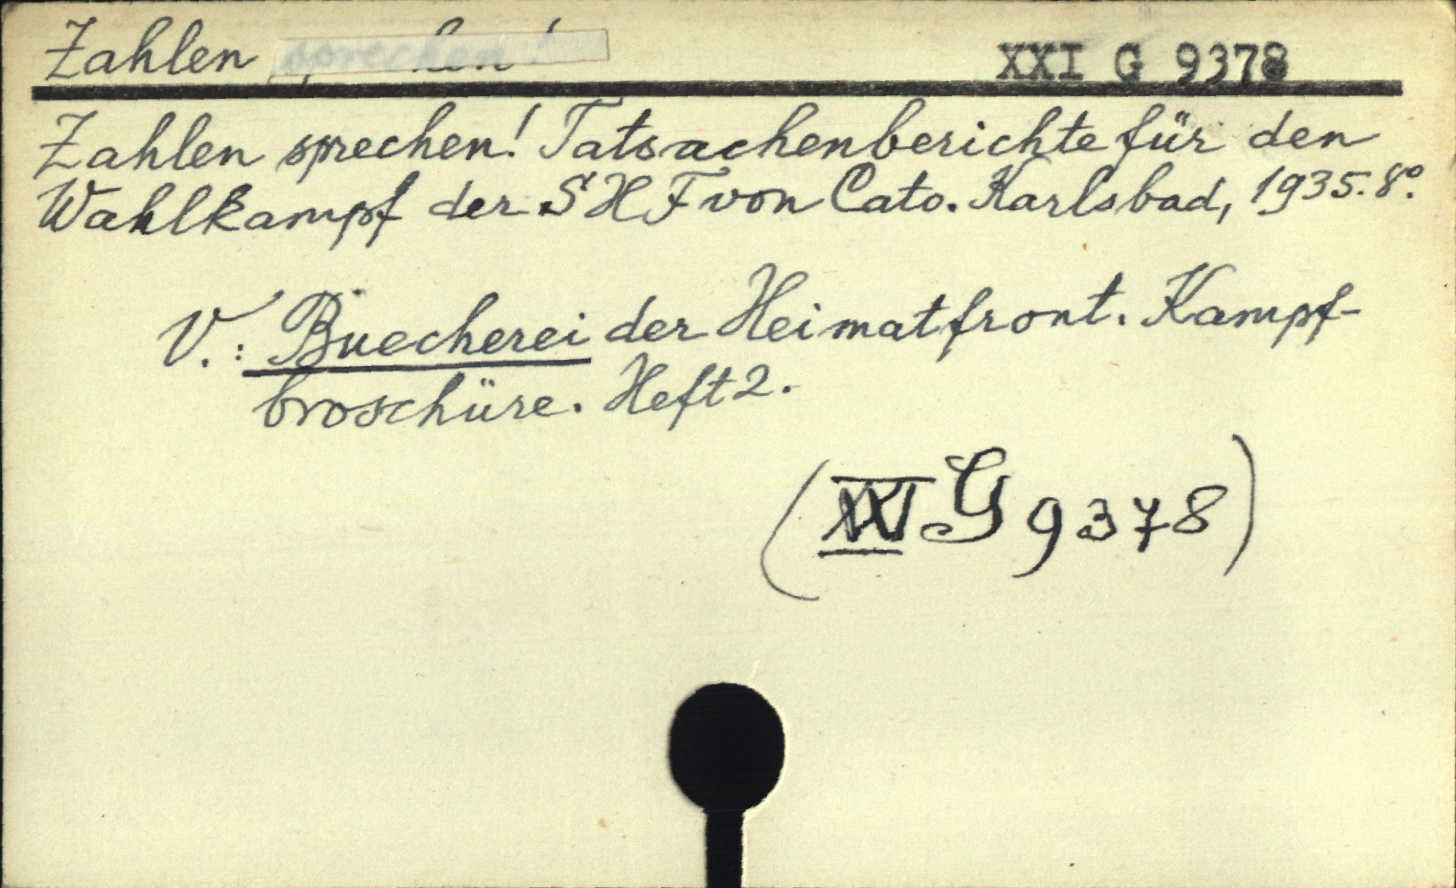 Zahlen sprechen! XXI G 9378
Zahlen sprechen! Tatsachenberichte für den
Wahlkampf der SHF von Cato. Karlsbad, 1935. 8°.
V.: Buecherei der Heimatfront. Kampf-
broschüre. Heft 2.
(XXI G 9378)